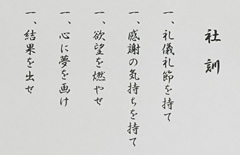 社訓
一、礼儀礼節を持て
一、感謝の気持ちを持て
一、欲望を燃やせ
一、心に夢を画け
一、結果を出せ